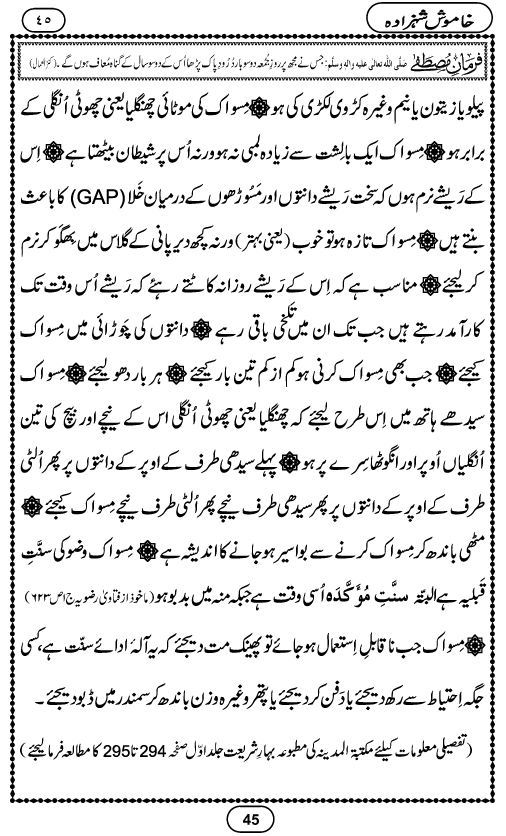 خاموش شہزادہ
٤٥
فرمانِ مصطفٰے صَلَّی اللہُ تعالٰی علیہ واٰلہٖ وسلَّم: جس نے مجھ پر روزِ جُمعہ دو سو بار دُرُود پاک پڑھا اُس کے دو سو سال کے گناہ مُعاف ہوں گے۔ (کنزالعمال)
پیلو یا زیتون یا نیم وغیرہ کڑوی لکڑی کی ہو ۞ مِسواک کی موٹائی چھنگلیا یعنی چھوٹی اُنگلی کے
برابر ہو ۞ مِسواک ایک بالِشت سے زیادہ لمبی نہ ہو ورنہ اُس پر شیطان بیٹھتا ہے ۞ اِس
کے رَیشے نرم ہوں کہ سخت رَیشے دانتوں اور مَسُوڑھوں کے درمیان خَلا (GAP) کا باعث
بنتے ہیں ۞ مِسواک تازہ ہو تو خوب (یعنی بہتر) ورنہ کچھ دیر پانی کے گلاس میں بھگو کر نرم
کر لیجئے ۞ مناسب ہے کہ اِس کے رَیشے روزانہ کاٹتے رہئے کہ رَیشے اُس وقت تک
کارآمد رہتے ہیں جب تک ان میں تَلخی باقی رہے ۞ دانتوں کی چَوڑائی میں مِسواک
کیجئے ۞ جب بھی مِسواک کرنی ہو کم از کم تین بار کیجئے ۞ ہر بار دھو لیجئے ۞ مِسواک
سیدھے ہاتھ میں اِس طرح لیجئے کہ چھنگلیا یعنی چھوٹی اُنگلی اس کے نیچے اور بیچ کی تین
اُنگلیاں اُوپر اور انگوٹھا سِرے پر ہو ۞ پہلے سیدھی طرف کے اوپر کے دانتوں پر پھر اُلٹی
طرف کے اوپر کے دانتوں پر پھر سیدھی طرف نیچے پھر اُلٹی طرف نیچے مِسواک کیجئے ۞
مٹھی باندھ کر مِسواک کرنے سے بواسیر ہو جانے کا اندیشہ ہے ۞ مِسواک وضو کی سنَّتِ
قَبلیہ ہے البتّہ سنَّتِ مُؤَکَّدَہ اُسی وقت ہے جبکہ منہ میں بدبو ہو (ماخوذ از فتاویٰ رضویہ ج١ص٦٢٣)
۞ مِسواک جب ناقابلِ اِستعمال ہو جائے تو پھینک مت دیجئے کہ یہ آلۂ ادائے سنّت ہے، کسی
جگہ اِحتیاط سے رکھ دیجئے یا دَفن کر دیجئے یا پتھر وغیرہ وزن باندھ کر سمندر میں ڈبو دیجئے۔
(تفصیلی معلومات کیلئے مکتبۃ المدینہ کی مطبوعہ بہارِ شریعت جلد اوّل صفحہ 294 تا 295 کا مطالعہ فرما لیجئے)
45